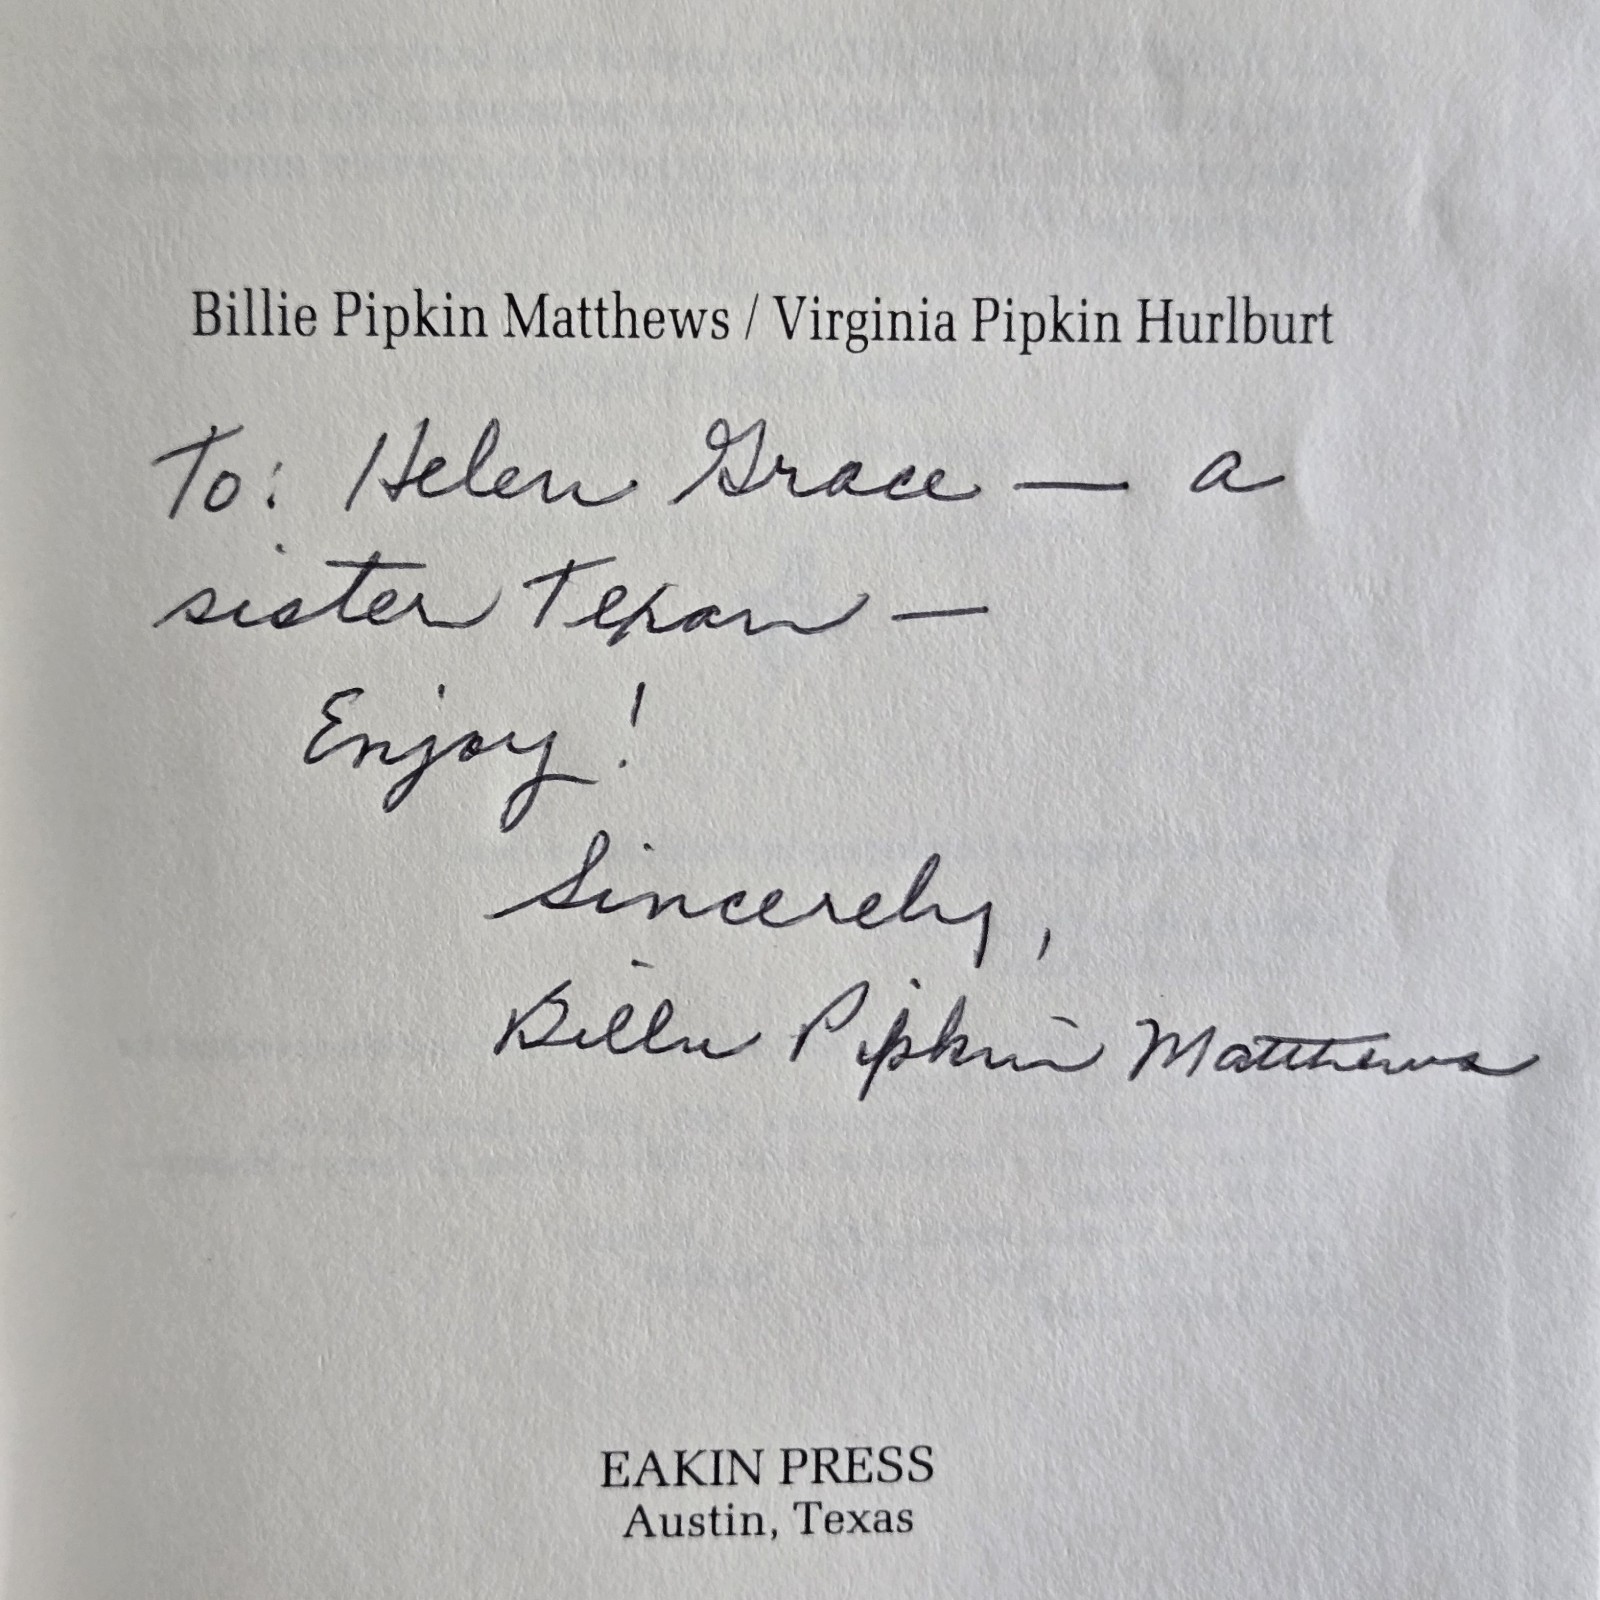 Billie Pipkin Matthews / Virginia Pipkin Hurlburt
To: Helen Grace — a
sister Texan —
Enjoy!
Sincerely,
Billie Pipkin Matthews
EAKIN PRESS
Austin, Texas